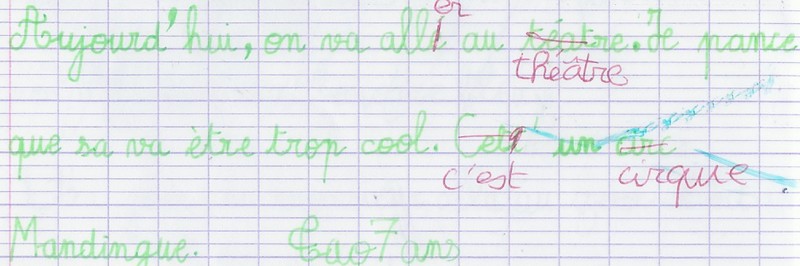 Aujourd'hui, on va allé er au téatre. théâtre Je pance
que sa va être trop cool. Ceté c'est un circ cirque
Mandingue. Léo 7 ans